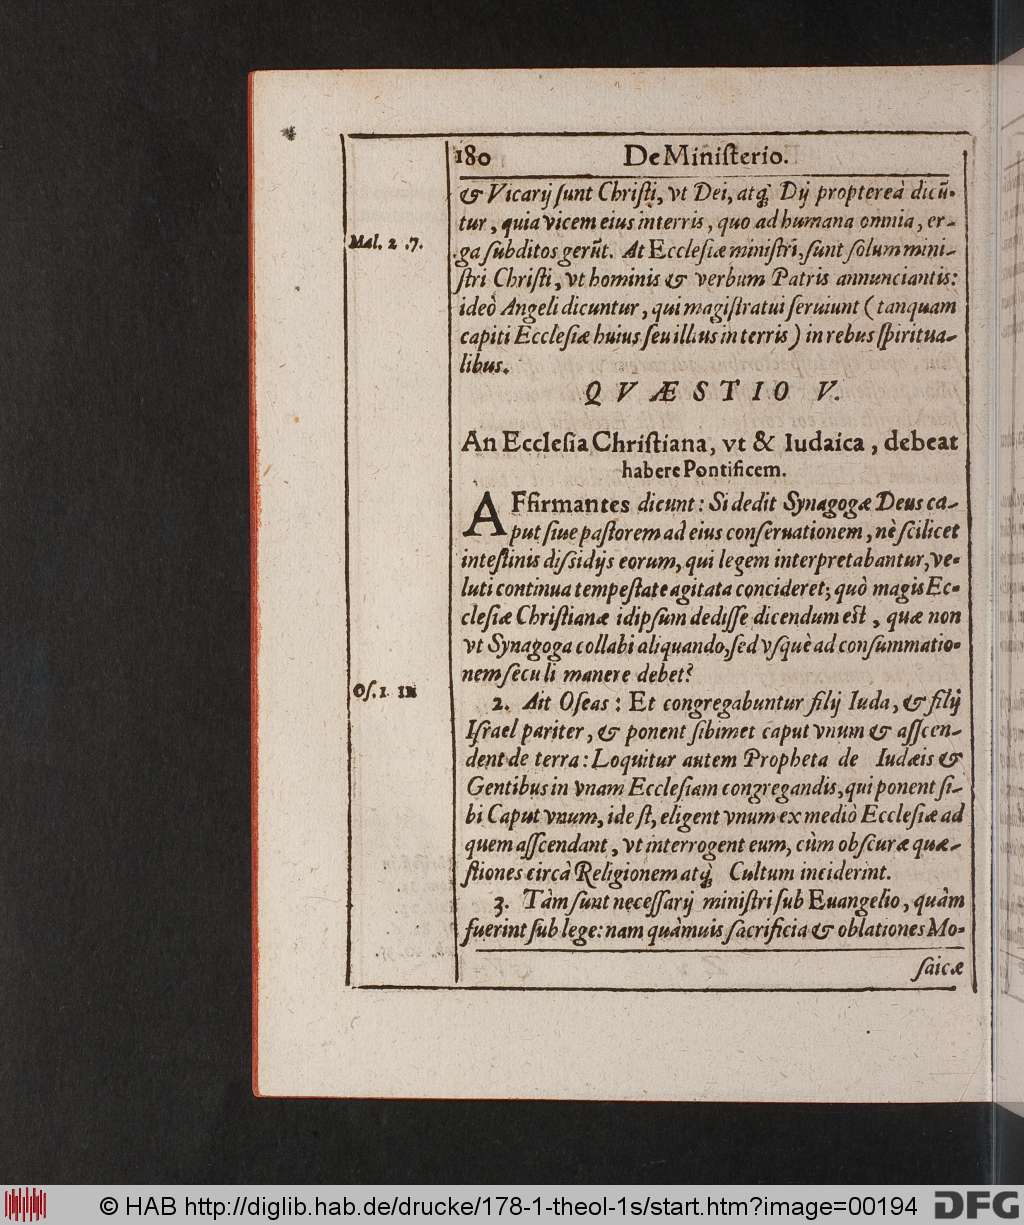 180 De Miniſterio.
& Vicarij ſunt Chriſti, vt Dei, atq́; Dij proptereà dicũ-
tur, quia vicem eius interris, quo ad humana omnia, er-
Mal. 2 .7.
ga ſubditos gerũt. At Eccleſiæ miniſtri, ſunt ſolum mini-
ſtri Chriſti, vt hominis & verbum Patris annunciantis:
ideò Angeli dicuntur, qui magiſtratui ſeruiunt (tanquam
capiti Eccleſiæ huius ſeu illius in terris) in rebus ſpiritua-
libus.
QVÆSTIO V.
An Eccleſia Chriſtiana, vt & Iudaica, debeat
habere Pontificem.
AFfirmantes dicunt: Si dedit Synagogæ Deus ca-
put ſiue paſtorem ad eius conſeruationem, nè ſcilicet
inteſtinis diſsidijs eorum, qui legem interpretabantur, ve-
luti continua tempeſtate agitata concideret; quò magis Ec-
cleſiæ Chriſtianæ idipſum dediſſe dicendum eſt, quæ non
vt Synagoga collabi aliquando, ſed vſquè ad conſummatio-
nem ſeculi manere debet?
Oſ. 1. 11
2. Ait Oſeas: Et congregabuntur filij Iuda, & filij
Iſrael pariter, & ponent ſibimet caput vnum & aſſcen-
dent de terra: Loquitur autem Propheta de Iudæis &
Gentibus in vnam Eccleſiam congregandis, qui ponent ſi-
bi Caput vnum, ide ſt, eligent vnum ex mediò Eccleſiæ ad
quem aſſcendant, vt interrogent eum, cùm obſcuræ quæ-
ſtiones circà Religionem atq́; Cultum inciderint.
3. Tàm ſunt neceſſarij miniſtri ſub Euangelio, quàm
fuerint ſub lege: nam quàmuis ſacrificia & oblationes Mo-
ſaicæ
© HAB http://diglib.hab.de/drucke/178-1-theol-1s/start.htm?image=00194
DFG